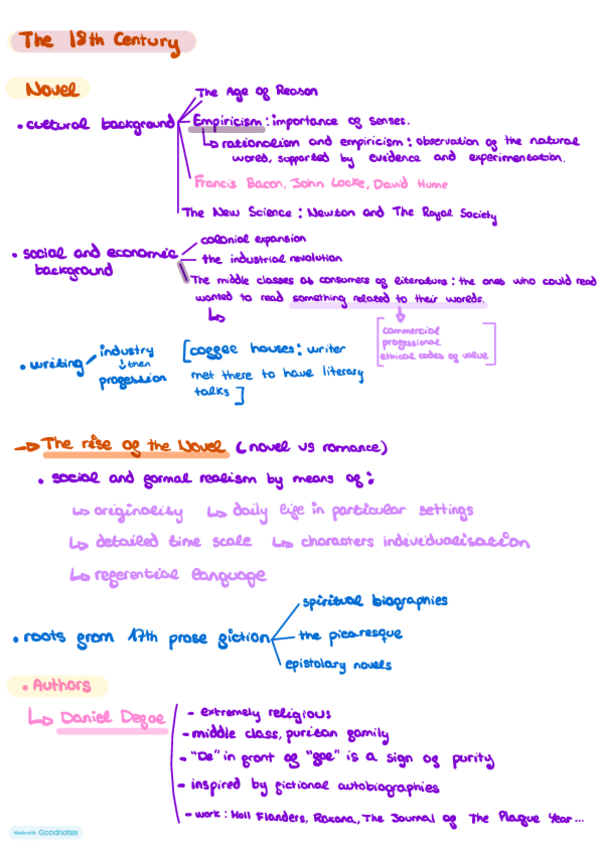 The 18th Century
Novel
• cultural background
The Age of Reason
Empiricism: importance of senses.
↳ rationalism and empiricism: observation of the natural
world, supported by evidence and experimentation.
Francis Bacon, John Locke, David Hume
The New Science: Newton and The Royal Society
• social and economic
background
colonial expansion
the industrial revolution
The middle classes as consumers of literature: the ones who could read
wanted to read something related to their worlds.
↳
[commercial
professional
ethical codes of value]
• writing
industry
↓ then
profession
[coffee houses: writer
met there to have literary
talks]
→ The rise of the Novel (novel vs romance)
• social and formal realism by means of:
↳ originality ↳ daily life in particular settings
↳ detailed time scale ↳ characters individualisation
↳ referential language
• roots from 17th prose fiction
spiritual biographies
the picaresque
epistolary novels
• Authors
↳ Daniel Defoe
- extremely religious
- middle class, puritan family
- "De" in front of "foe" is a sign of purity
- inspired by fictional autobiographies
- work: Moll Flanders, Roxana, The Journal of The Plague Year...
Made with Goodnotes